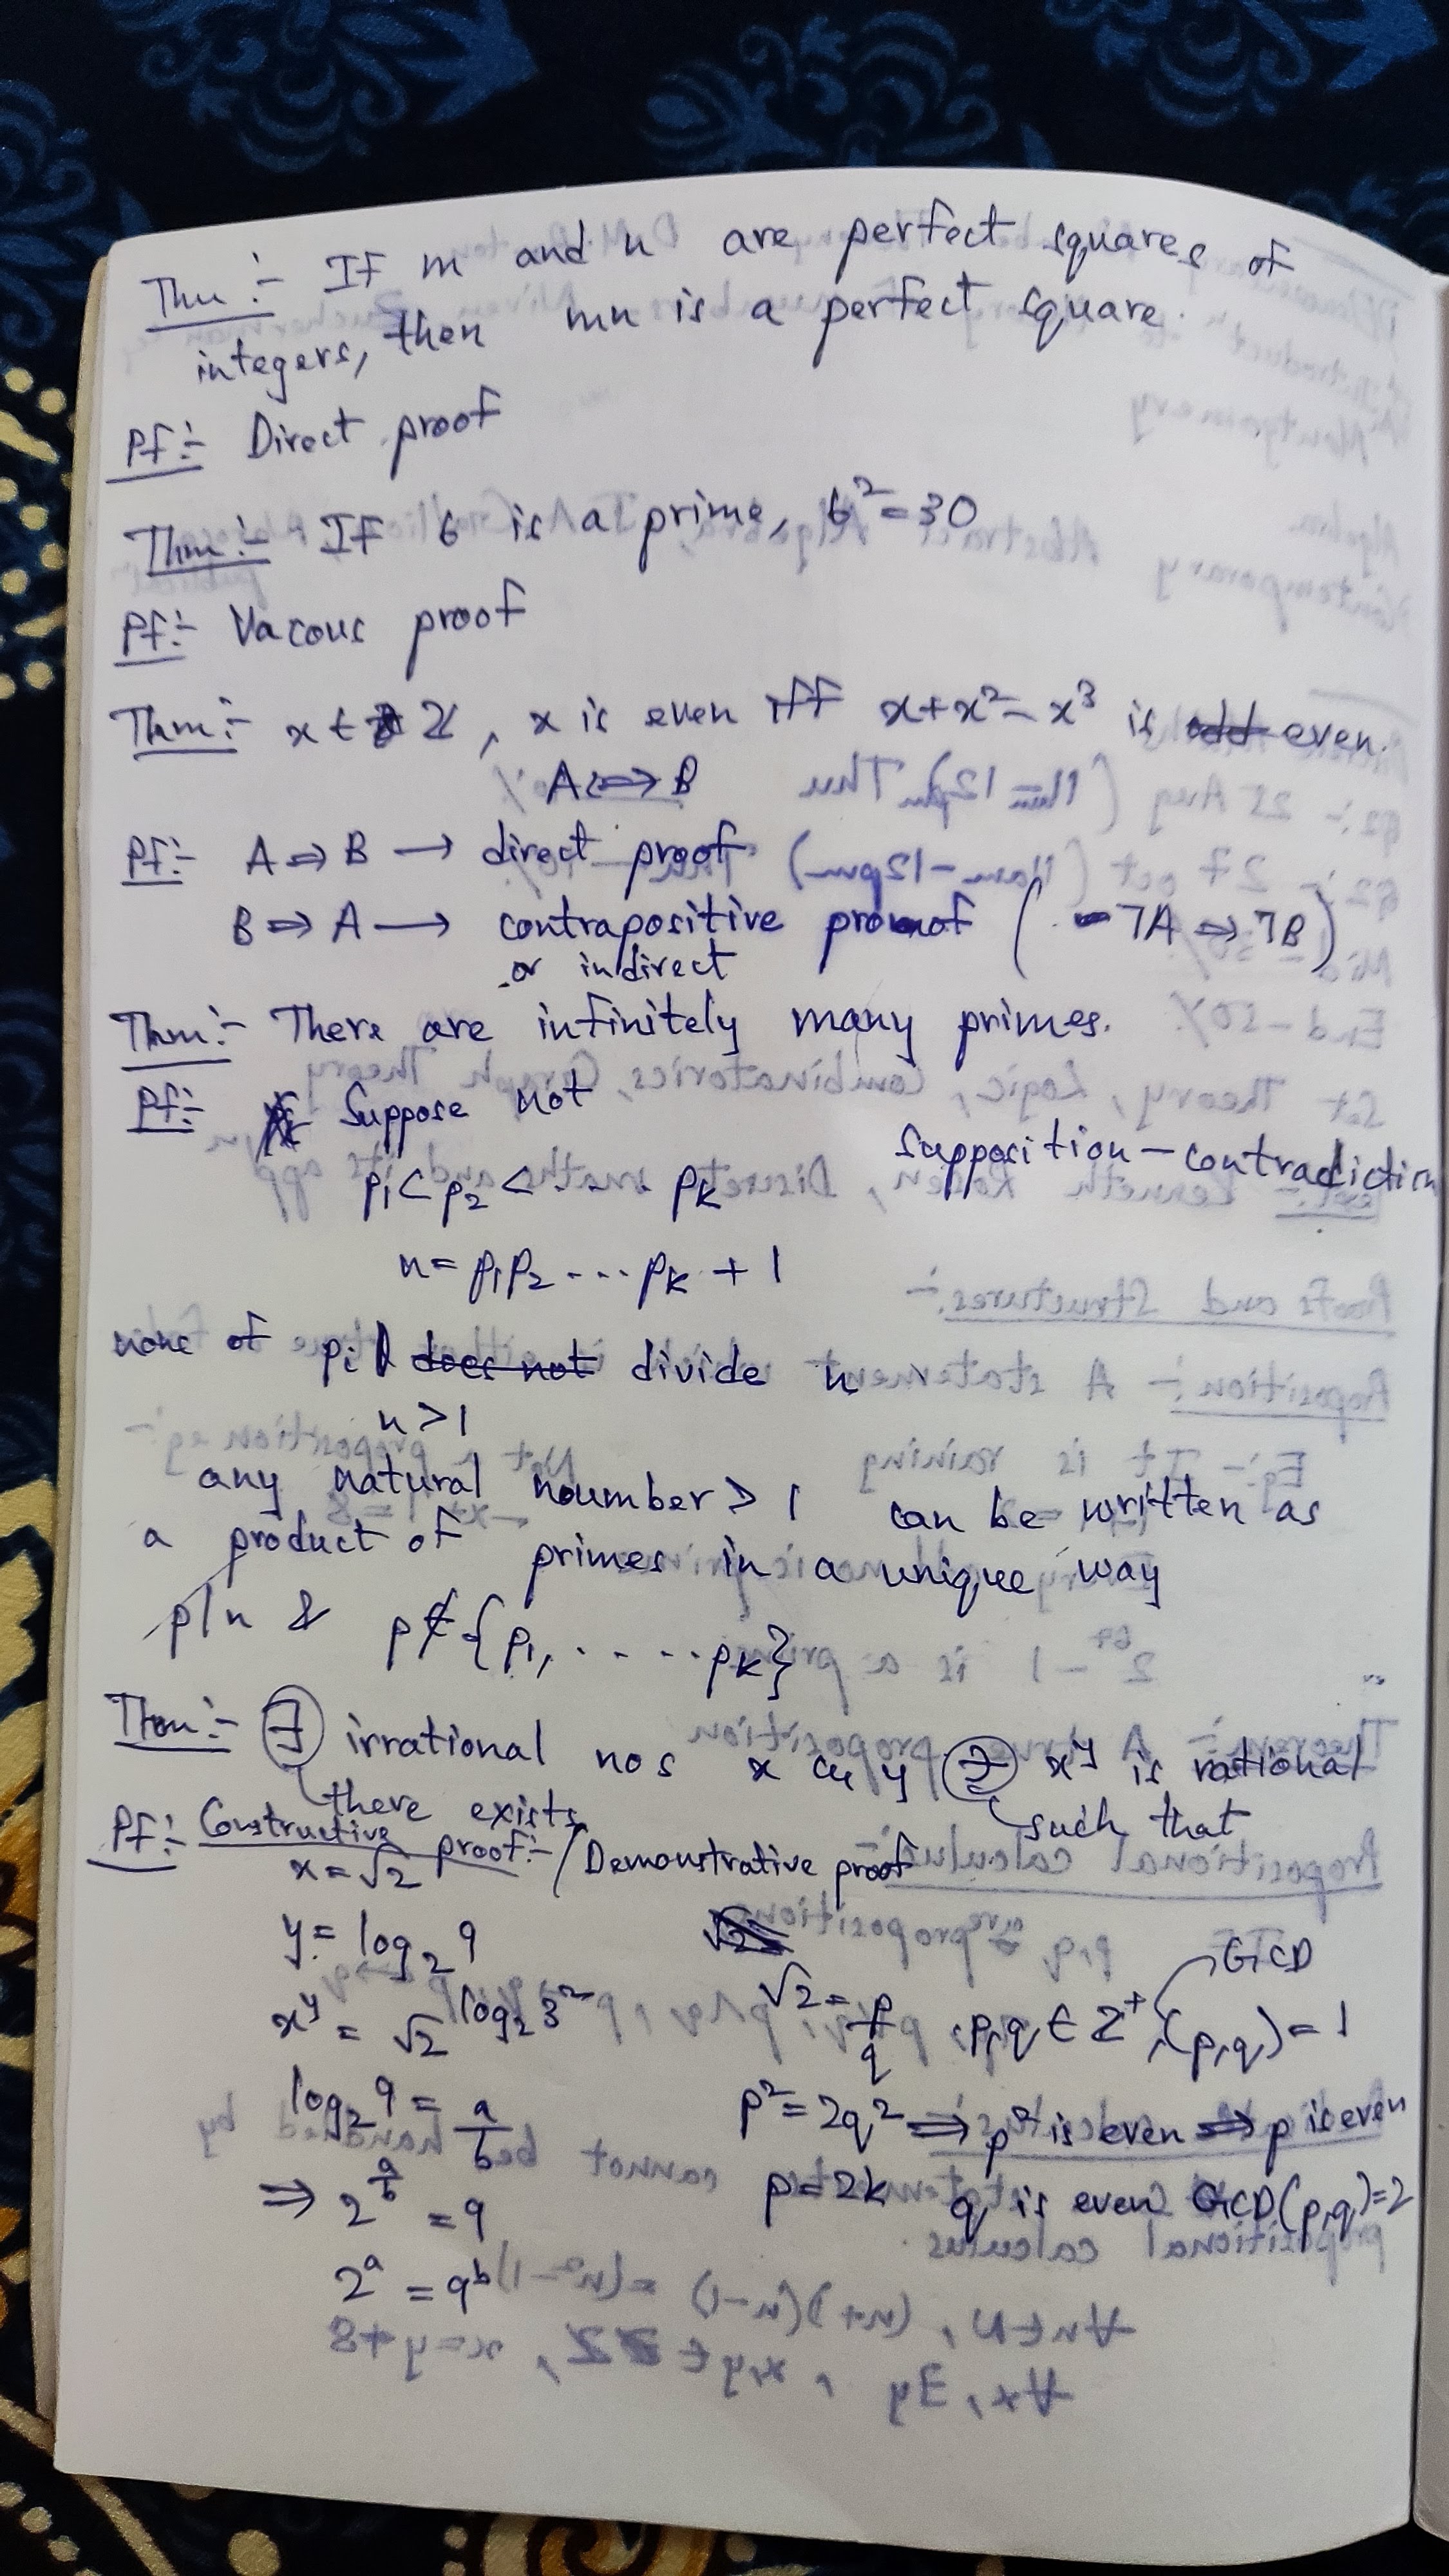 Thm :- If m and n are perfect squares of
integers, then mn is a perfect square.
Pf :- Direct proof
Thm :- If 6 is a prime, 6² = 30
Pf :- Vacous proof
Thm :- x ∈ ℤ, x is even iff x + x² - x³ is odd even.
A ⇔ B
Pf :- A ⇒ B → direct proof
B ⇒ A → contrapositive proof ( ¬A ⇒ ¬B )
or indirect
Thm :- There are infinitely many primes.
Pf :- Suppose not
supposition - contradiction
p₁ < p₂ < .... pₖ
n = p₁p₂ ... pₖ + 1
none of pᵢ does not divide n
n > 1
any natural noumber > 1 can be written as
a product of primes in a unique way
p|n & p ∉ {p₁, ..... pₖ}
Thm :- ∃ irrational nos x & y ∋ xʸ is rational
there exists such that
Pf :- Constructive proof :- / Demonstrative proof
x = √2
y = log₂ 9
xʸ = √2^(log₂ 3²)
log₂ 9 = a/b
⇒ 2^(a/b) = 9
2ᵃ = 9ᵇ
√2
GCD
√2 = p/q , p,q ∈ Z⁺, (p,q) = 1
p² = 2q² ⇒ p² is even ⇒ p is even
p = 2k q is even GCD(p,q)=2